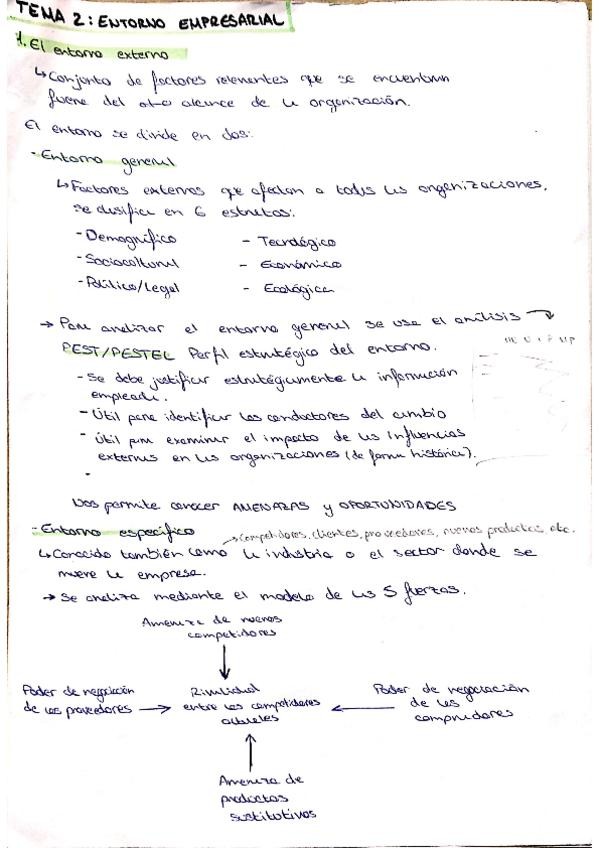 TEMA 2: ENTORNO EMPRESARIAL
1. El entorno externo
↳ Conjunto de factores relevantes que se encuentran
fuera del alcance de la organización.
El entorno se divide en dos:
- Entorno general
↳ Factores externos que afectan a todas las organizaciones,
se clasifica en 6 estratos:
- Demográfico - Tecnológico
- Sociocultural - Económico
- Político/Legal - Ecológica
→ Para analizar el entorno general se usa el análisis
PEST/PESTEL Perfil estratégico del entorno.
- Se debe justificar estratégicamente la información
empleada.
- Útil para identificar los conductores del cambio
- Útil para examinar el impacto de las influencias
externas en las organizaciones (de forma histórica).
-
Nos permite conocer AMENAZAS y OPORTUNIDADES
- Entorno específico → competidores, clientes, proveedores, nuevos productos etc.
↳ Conocido también como la industria o el sector donde se
mueve la empresa.
→ Se analiza mediante el modelo de las 5 fuerzas.
Amenaza de nuevos
competidores
Poder de negociación
de los proveedores
Rivalidad
entre los competidores
actuales
Poder de negociación
de los
compradores
Amenaza de
productos
sustitutivos